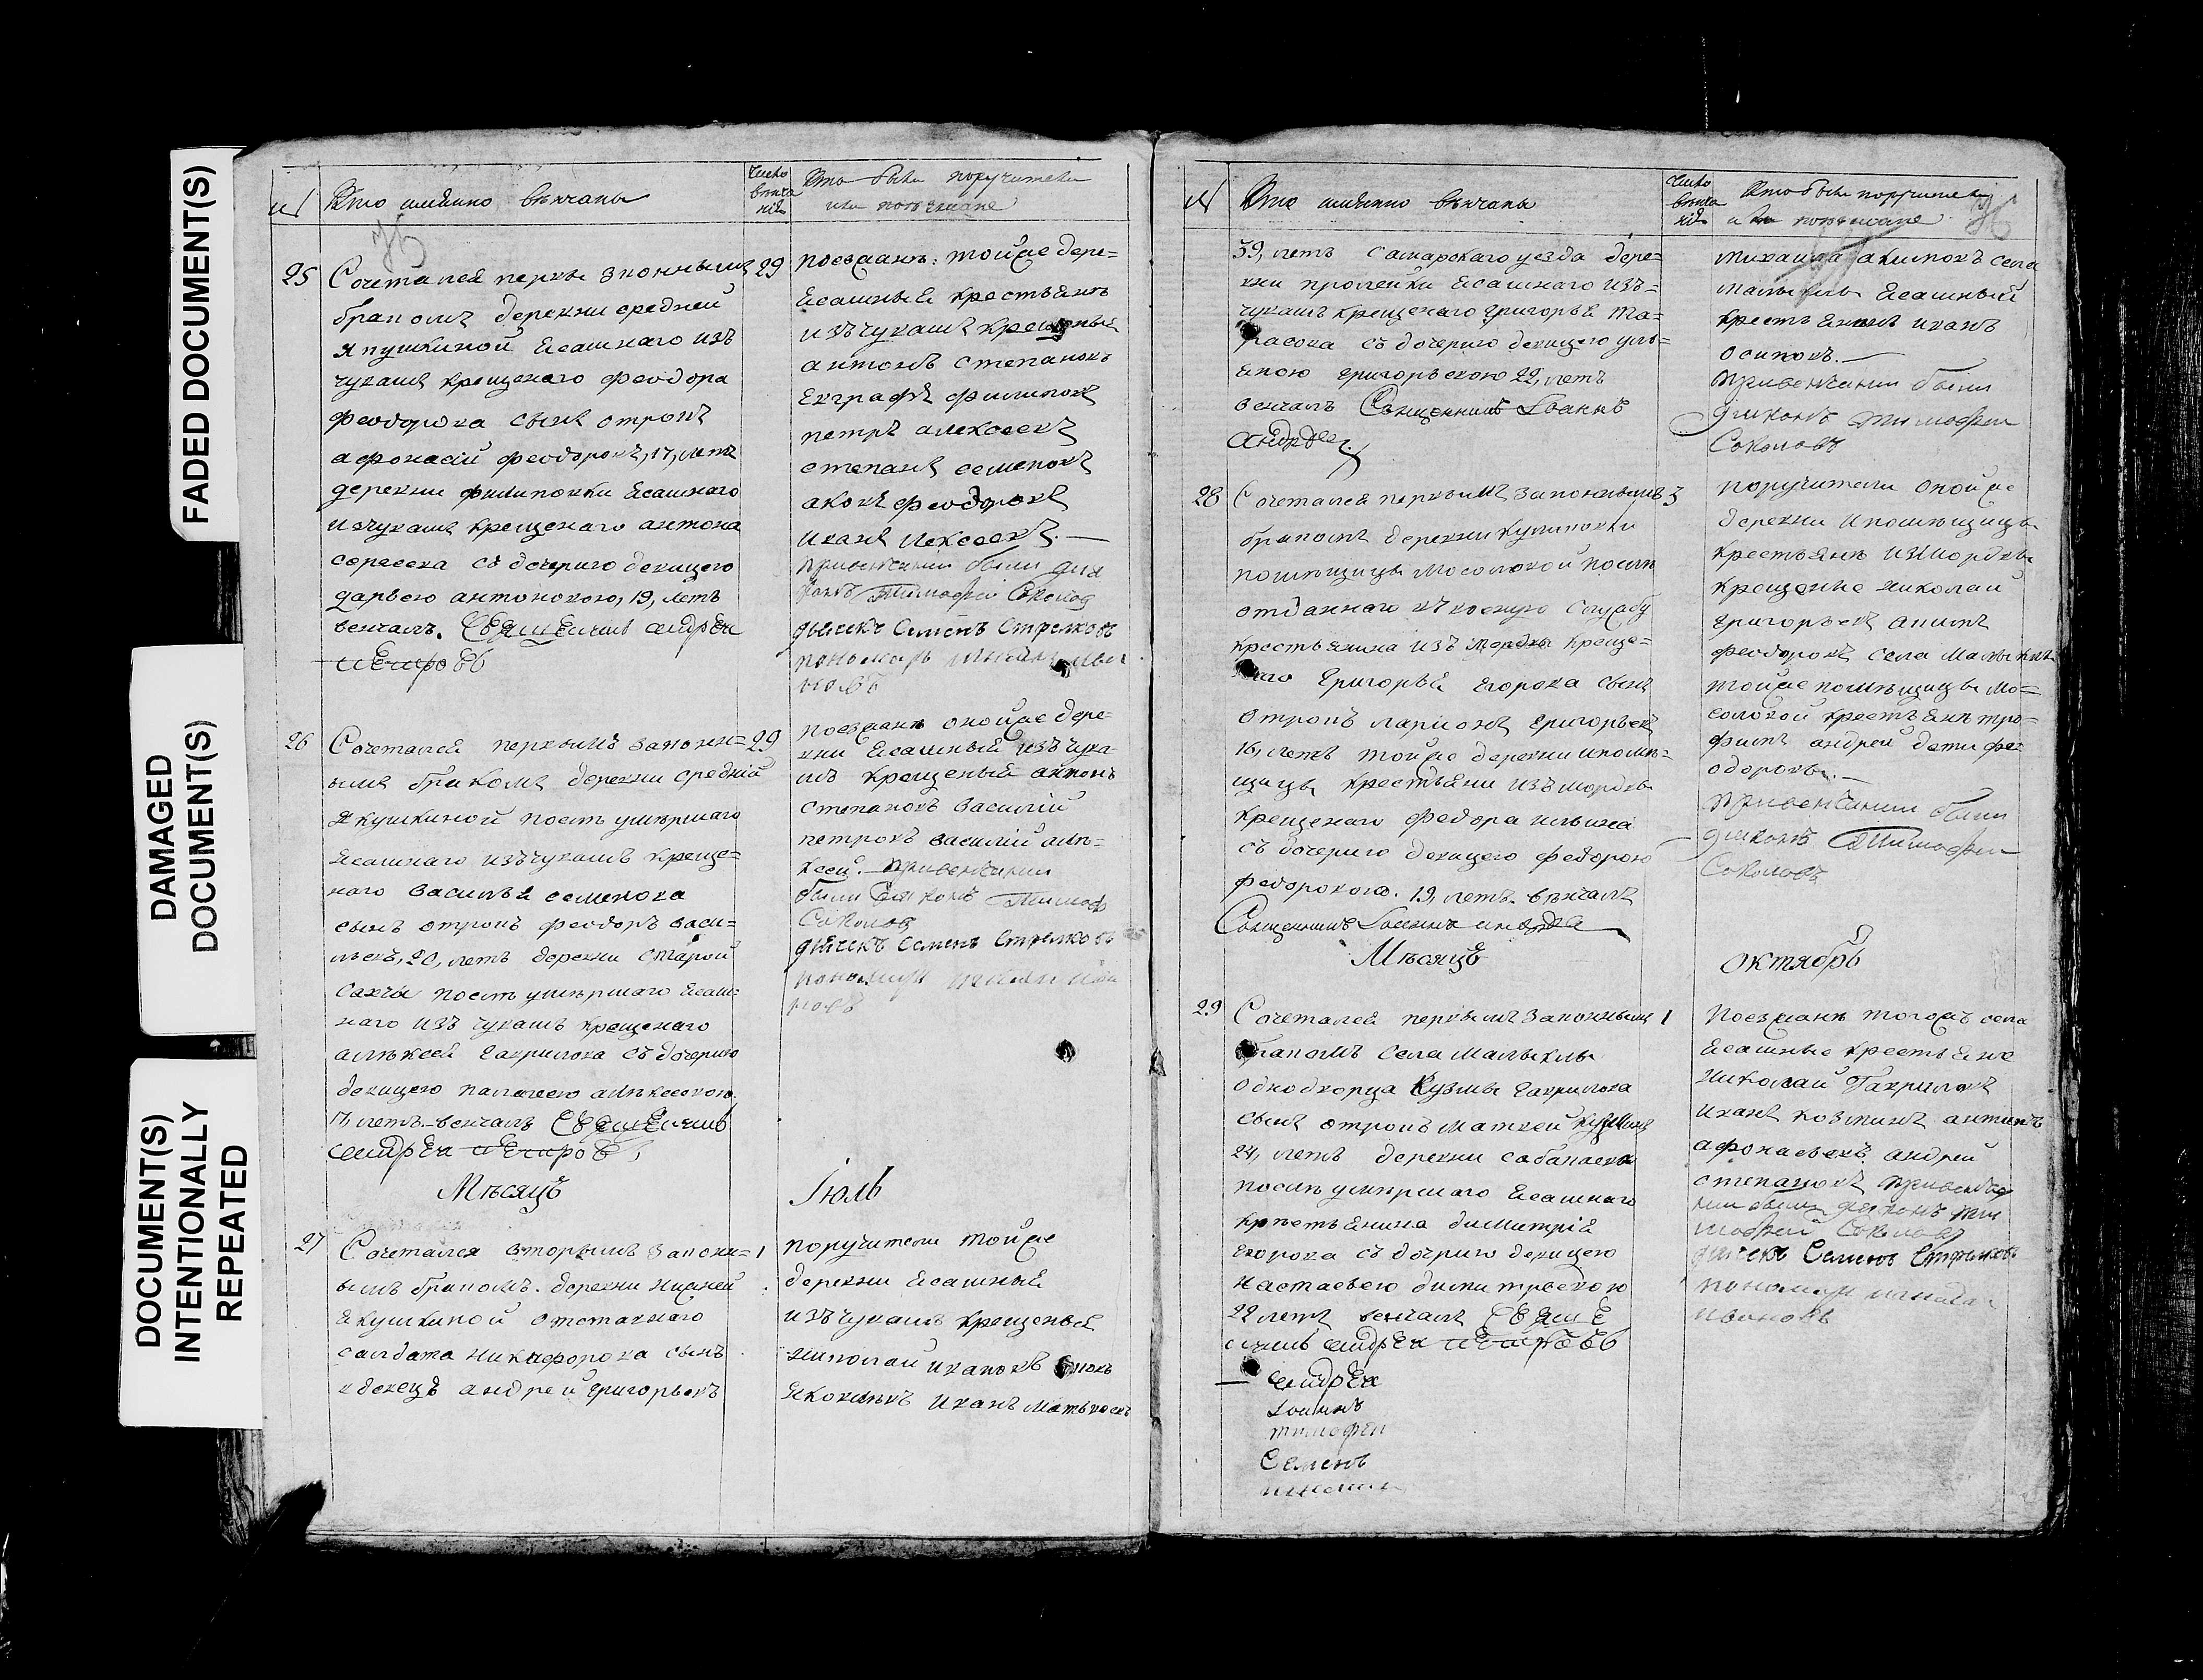 FADED DOCUMENT(S)
DAMAGED
DOCUMENT(S)
DOCUMENT(S)
INTENTIONALLY
REPEATED
Кто имянно венчаны
Число
венча
нія
Кто были поручители
или поезжане
76
25 Сочетался первы законнымъ 29
бракомъ деревни средней
Якушкиной ясашнаго изъ
чувашъ крещенаго феодора
феодорова сынъ отрокъ
афонасій феодоровъ, 17, летъ
деревни филиповки ясашнаго
изчувашъ крещенаго антона
сергеева съ дочерию девицею
дарьею антоновою, 19, летъ
венчалъ. Священникъ андрей
петровъ
поезжанъ: тойже дере=
ясашныя крестьянъ
изъ чувашъ крещеный
антонъ степановъ
евграфъ филиповъ
петръ алексеевъ
степанъ семеновъ
яковъ феодоровъ
иванъ лексеевъ. —
привенчании были дия
конъ Тимофей Соколов
дьячекъ Семенъ Стрелковъ
пономарь
26 Сочетался первымъ законн= 29
ымъ бракомъ деревни средній
якушкиной после умершаго
ясашнаго изъ чувашъ креще=
наго василья семенова
сынъ отрокъ феодоръ васи=
льевъ, 20, летъ деревни старой
сахчи после умершаго ясаш=
наго изъ чувашъ крещенаго
алексея гаврилова съ дочерию
девицею палагею алексеевою.
17, летъ венчалъ Священникъ
андрей петровъ
поезжанъ оной же дере=
вни ясашный изъ чува=
шъ крещеный антонъ
степановъ василій
петровъ василій але=
ксеи. привенчании
были диаконъ Тимоф
Соколов
дьячекъ Семенъ Стрелковъ
пономарь
Месяцъ Іюль
27 Сочетался вторымъ законн= 1
ымъ бракомъ. деревни нижней
якушкиной отставнаго
салдата никифорова сынъ
вдовецъ андрей григорьевъ
поручители тойже
деревни ясашныя
изъ чувашъ крещеныя
николай ивановъ
яковлевъ иванъ матвеевъ
Кто имянно венчаны
Число
венча
нія
Кто были поручители
или поезжане
76
39, летъ самарскаго уезда дере=
вни пролейки ясашнаго изъ=
чувашъ крещенаго григорья та=
расова съ дочерию девицею уль=
яною григорьевою 22, летъ
венчалъ Священникъ Іоаннъ
андреев
михаила акимовъ села
малыклы ясашный
крестьянинъ иванъ
осиповъ. —
привенчании были
диаконъ тимофеи
Соколовъ
28 Сочетался первымъ законнымъ 3
бракомъ деревни куликовки
помещицы мосоловой после
отданнаго въ военую службу
крестьянина изъ мордвы креще=
наго григорья егорова сынъ
отрокъ ларионъ григорьевъ
16, летъ тойже деревни и поме=
щицы крестьяни изъ мордвы
крещенаго федора ильина
съ дочерию девицею федорою
федоровою. 19, летъ. венчалъ
Священникъ Іоаннъ андреев
поручители оной же
деревни и помещицы
крестьянъ из мордвы
крещеные николаи
григорьевъ
феодоровъ села малыклы
тойже помещицы мо=
соловой крестьянъ тро=
фимъ андреи дети фе=
одоровы. —
привенчании были
диаконъ Тимофеи
Соколовъ
Месяцъ Октябрь
29 Сочетался первымъ законнымъ 1
бракомъ села малыклы
однодворца кузмы гаврилова
сынъ отрокъ матвей кузминъ
24, летъ деревни сабанаева
после умершаго ясашнаго
крестьянина димитрія
егорова съ дочерию девицею
настасьею димитриевою
22 летъ венчалъ Священ
никъ андрей петровъ
поезжанъ тогожъ села
ясашные крестьяне
николай Гавриловъ
иванъ козминъ антипъ
афонасьевъ андрей
степановъ привенча
нии были диаконъ ти
мофей Соколовъ
дьячекъ Семенъ Стрелковъ
пономарь
ивановъ
андрей
Іоаннъ
тимофеи
Семенъ